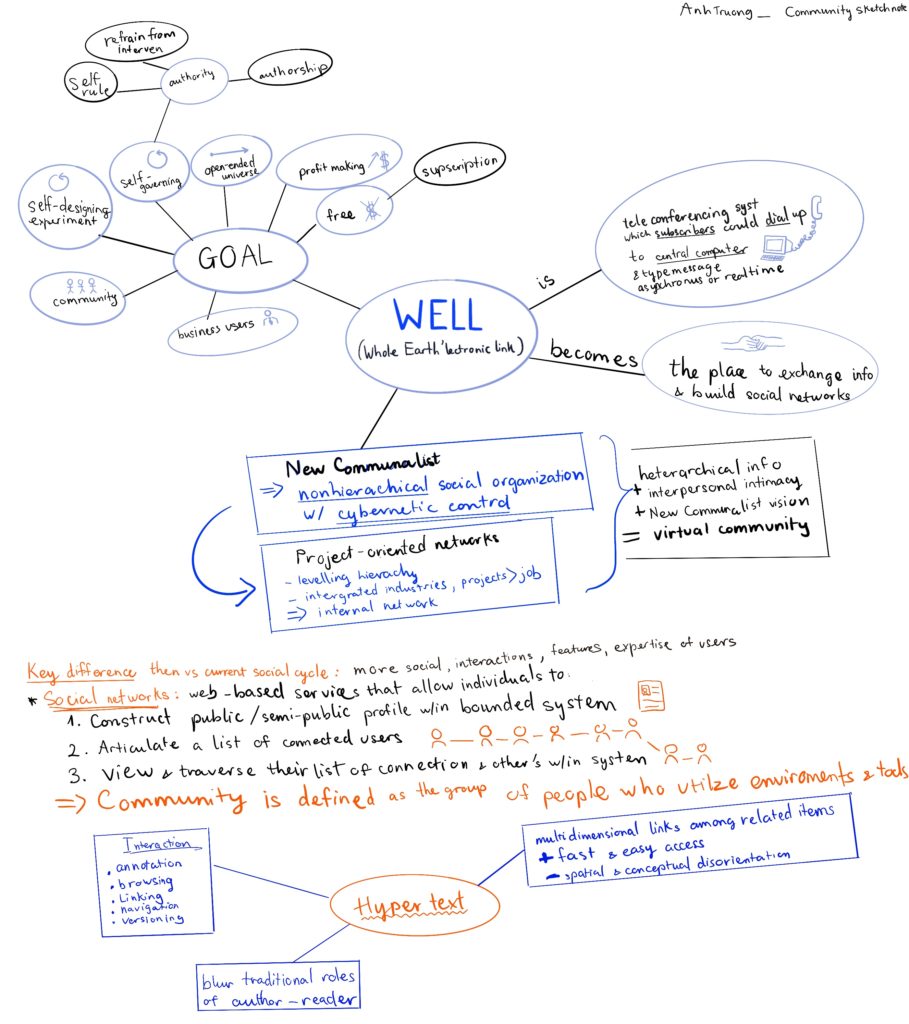 AnhTruong_ Community sketchnote
refrain from
interven
self
rule
authority
authorship
self-designing
experiment
self-
governing
open-ended
universe
profit making
$
free
$
supscription
GOAL
community
business users
WELL
(Whole Earth 'lectronic link)
is
tele conferencing syst
which subscribers could dial up
to central computer
& type message
asynchronus or realtime
becomes
the place to exchange info
& build social networks
New Communalist
=> nonhierachical social organization
w/ cybernetic control
Project-oriented networks
- levelling hierachy
- intergrated industries, projects > job
=> internal network
heterarchical info
+ interpersonal intimacy
+ New Communalist vision
= virtual community
Key difference then vs current social cycle : more social, interactions, features, expertise of users
* Social networks : web-based services that allow individuals to:
1. Construct public/semi-public profile w/in bounded system
2. Articulate a list of connected users
3. View & traverse their list of connection & other's w/in system
=> Community is defined as the group of people who utilze enviroments & tools
Interaction
. annotation
. browsing
. Linking
. navigation
. versioning
Hyper text
multidimensional links among related items
+ fast & easy access
- spatial & conceptual disorientation
blur traditional roles
of author-reader